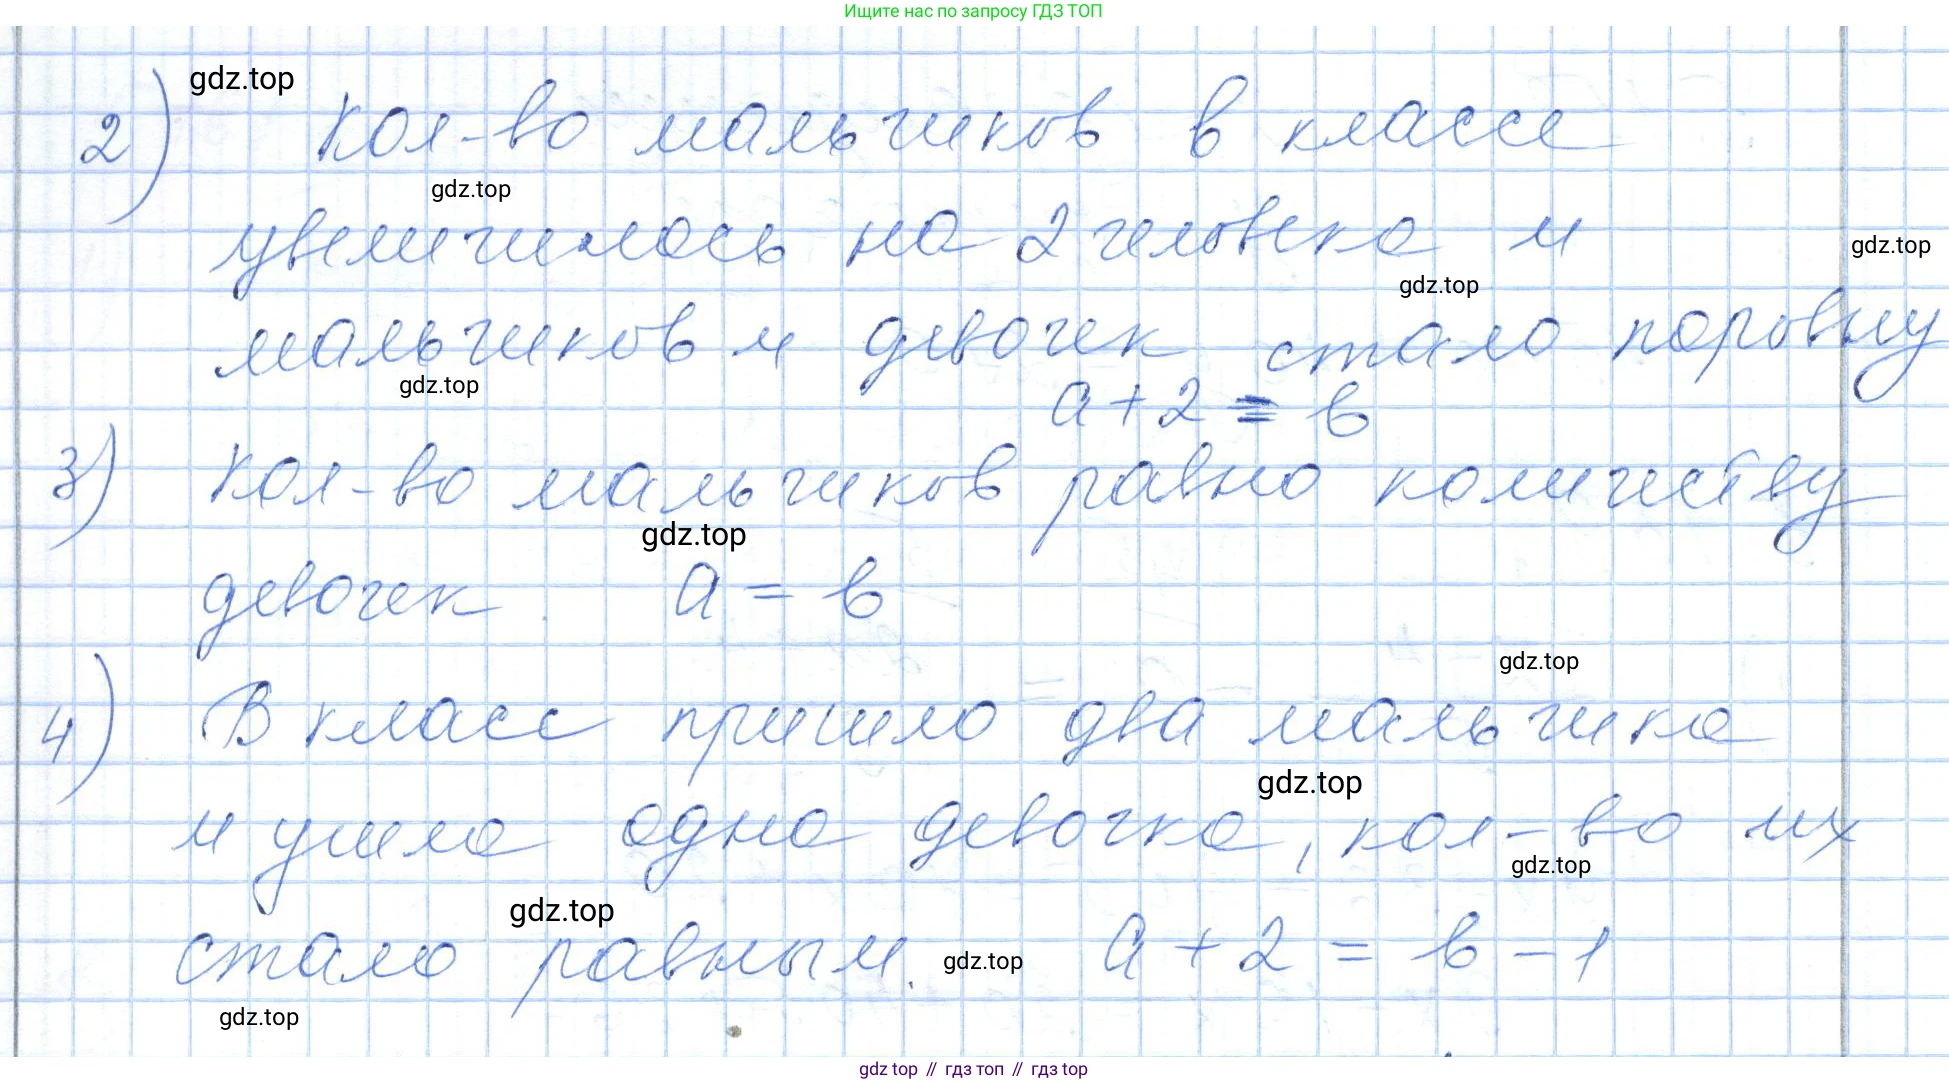 Ищите нас по запросу ГДЗ ТОП
gdz.top
2) Кол-во мальчиков в классе
gdz.top
увеличилось на 2 человека и
gdz.top
gdz.top
мальчиков и девочек стало поровну
gdz.top
a + 2 = в
3) Кол-во мальчиков равно количеству
gdz.top
девочек a = в
gdz.top
4) В класс пришло два мальчика
gdz.top
и ушла одна девочка, кол-во их
gdz.top
gdz.top
стало равным. a + 2 = в - 1
gdz.top
gdz.top
gdz top // гдз топ // гдз top